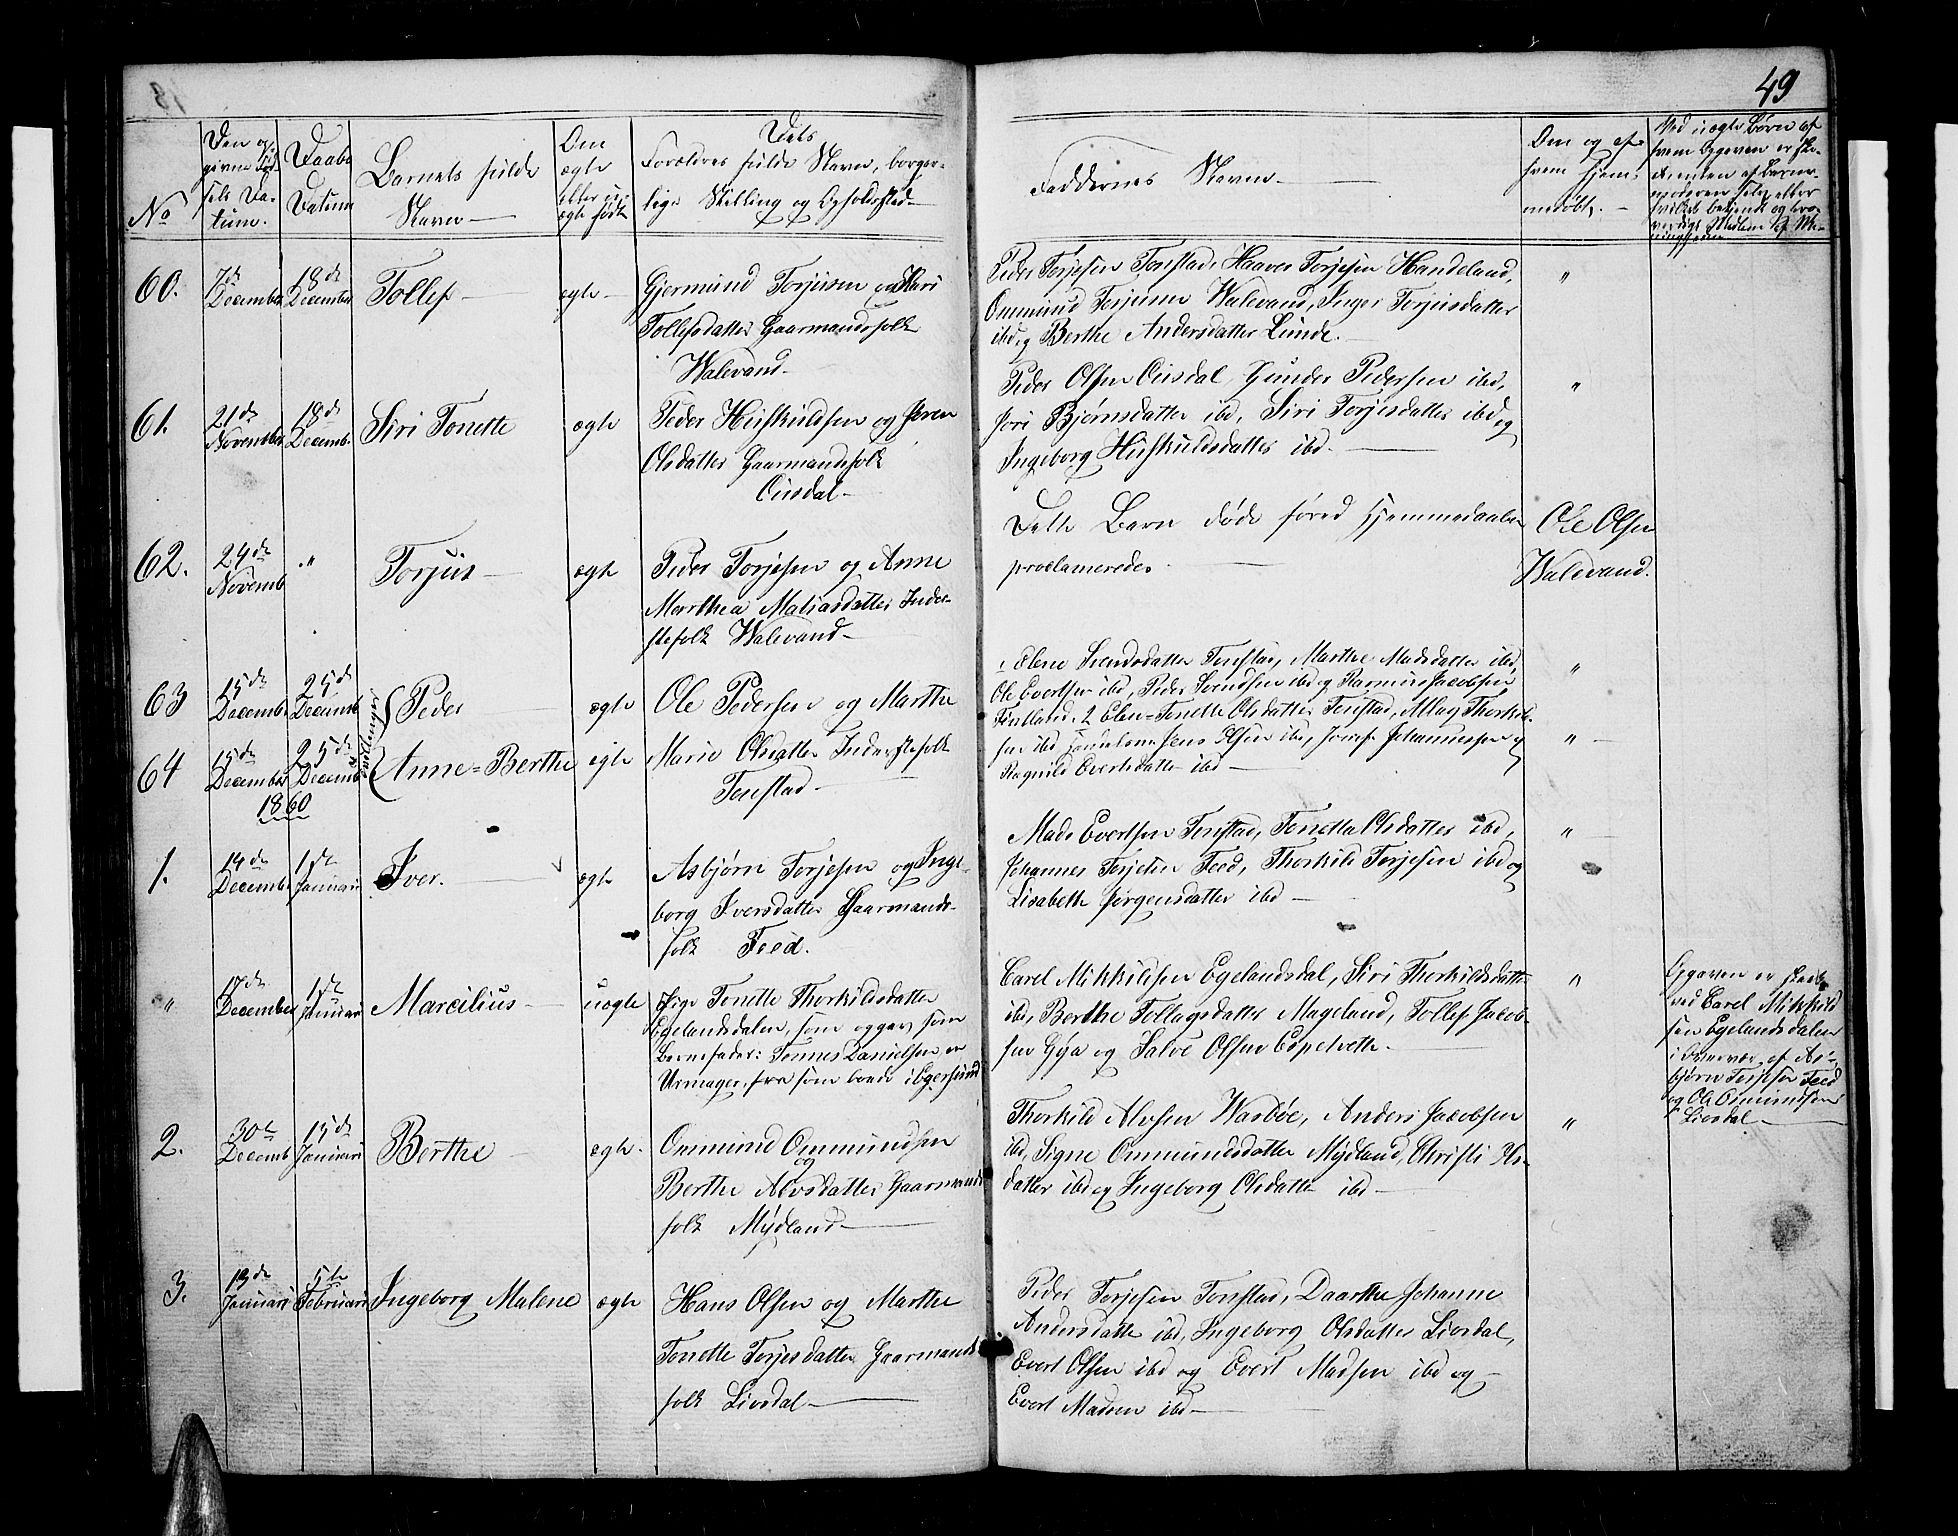 49
No
Den op-
given Fød-
sels Da-
tum.
Daabs
Datum
Barnets fulde
Navn
Om
ægte
eller u-
ægte født
Dets
Forældres fulde Navn, borger-
lige Stilling og Opholdssted
Faddernes Navne
Om og af
hvem hjem-
medøbt.
Ved uægte Børn af
hvem Opgaven er ske-
60.
7de
December
18de
December
Tollef
ægte
Gjermund Torjusen og Kari
Tollefsdatter Gaarmandsfolk
Walevand
Peder Torjesen Tonstad, Haaver Torjesen Handeland,
Ommund Torjusen Walevand, Inger Torjusdatter
ibd og Berthe Andersdatter Lunde.
"
61.
21de
November
18de
Decemb.
Siri Tonette
ægte
Peder Huskuldsen og
Olsdatter Gaarmandsfolk
Ousdal
Peder Olsen Ousdal, Gunder Pedersen ibd,
Jori Bjørnsdatter ibd, Siri Torjesdatter ibd og
Ingeborg Huskuldsdatter ibd
"
62.
24de
Novemb
"
Torjus
ægte
Peder Torjesen og Anne
Marthea Matiasdatter Inder-
stefolk Walevand
Dette Barn døde førend Hjemmedaaben
proclameredes
Ole Olsen
Walevand.
63
15de
Decemb.
25de
Decemb
Peder
ægte
Ole Pedersen og Marthe
1, Elene Svendsdatter Tonstad, Marthe Madsdatter ibd,
Ole Evertsen ibd, Peder Svendsen ibd og Rasmus Jacobsen
"
64
15de
December
25de
Decemb
Tvillinger
Anne-Berthe
ægte
Marie Olsdatter Inderstefolk
Tonstad
Fintland. 2 Elen-Tonette Olsdatter Tonstad, Alaug Thorkil-
sen ibd Jens Olsen ibd, Josef Johannessen og
Ragnild Evertsdatter ibd
"
1860
1.
14de
December
1ste
Januari
Iver.
ægte
Asbjørn Torjesen og Inge-
borg Iversdatter Gaarmands-
folk Feed.
Mads Evertsen Tonstad, Tonetta Olsdatter ibd,
Johannes Torjesen Feed, Thorkild Torjesen ibd og
Lisabeth Jørgensdatter ibd
"
"
17de
December
1ste
Januari
Marcilius
uægte
Pige Tonette Thorkildsdatter
Egelandsdalen, som opgav som
Barnefader: Tønnes Danielsen en
Urmager, som boede i Egersund
Carel Mikkilsen Egelandsdal, Siri Thorkildsdatter
ibd, Berthe Tollagsdatter Mageland, Tollef Jacob-
sen Gya og Salve Olsen Espetveth.
"
Opgaven er skeet
ved Carel Mikkild
sen Egelandsdalen
i Overvær af As-
bjørn Torjesen Feed
og Ole Ommundsen
Liosdal
2.
30te
Decemb
15de
Januari
Berthe
ægte
Ommund Ommundsen
og
Berthe Alvsdatter Gaarmands
folk Mydland
Thorkild Alvsen Wasbøe, Anders Jacobsen
ibd, Signe Ommundsdatter Mydland, Christi Ols-
datter ibd og Ingeborg Olsdatter ibd
"
3.
13de
Januari
5te
Februari
Ingeborg Malene
ægte
Hans Olsen og Marthe
Tonette Torjesdatter Gaarmands
folk Liosdal
Peder Torjesen Tonstad, Daarthe Johanne
Andersdatter ibd, Ingeborg Olsdatter Liosdal,
Evert Olsen ibd og Evert Madsen ibd og
Evert Madsen ibd